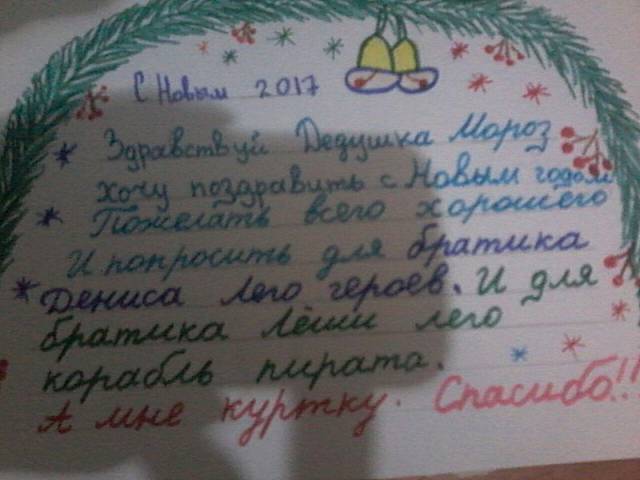 С Новым 2017
Здравствуй Дедушка Мороз
хочу поздравить с Новым годом
Пожелать всего хорошего
И попросить для братика
Дениса лего героев. И для
братика Лёши лего
корабль пирата.
А мне куртку. Спасибо!!